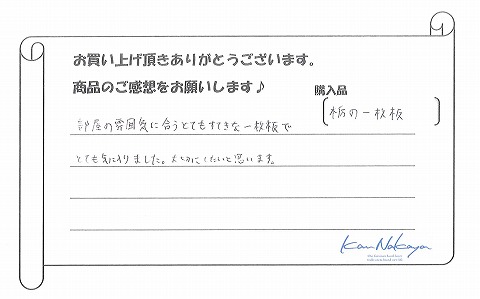 お買い上げ頂きありがとうございます。
商品のご感想をお願いします♪
購入品
栃の一枚板
部屋の雰囲気に合うとてもすてきな一枚板で
とても気に入りました。大切にしたいと思います。
Kan Nakaya